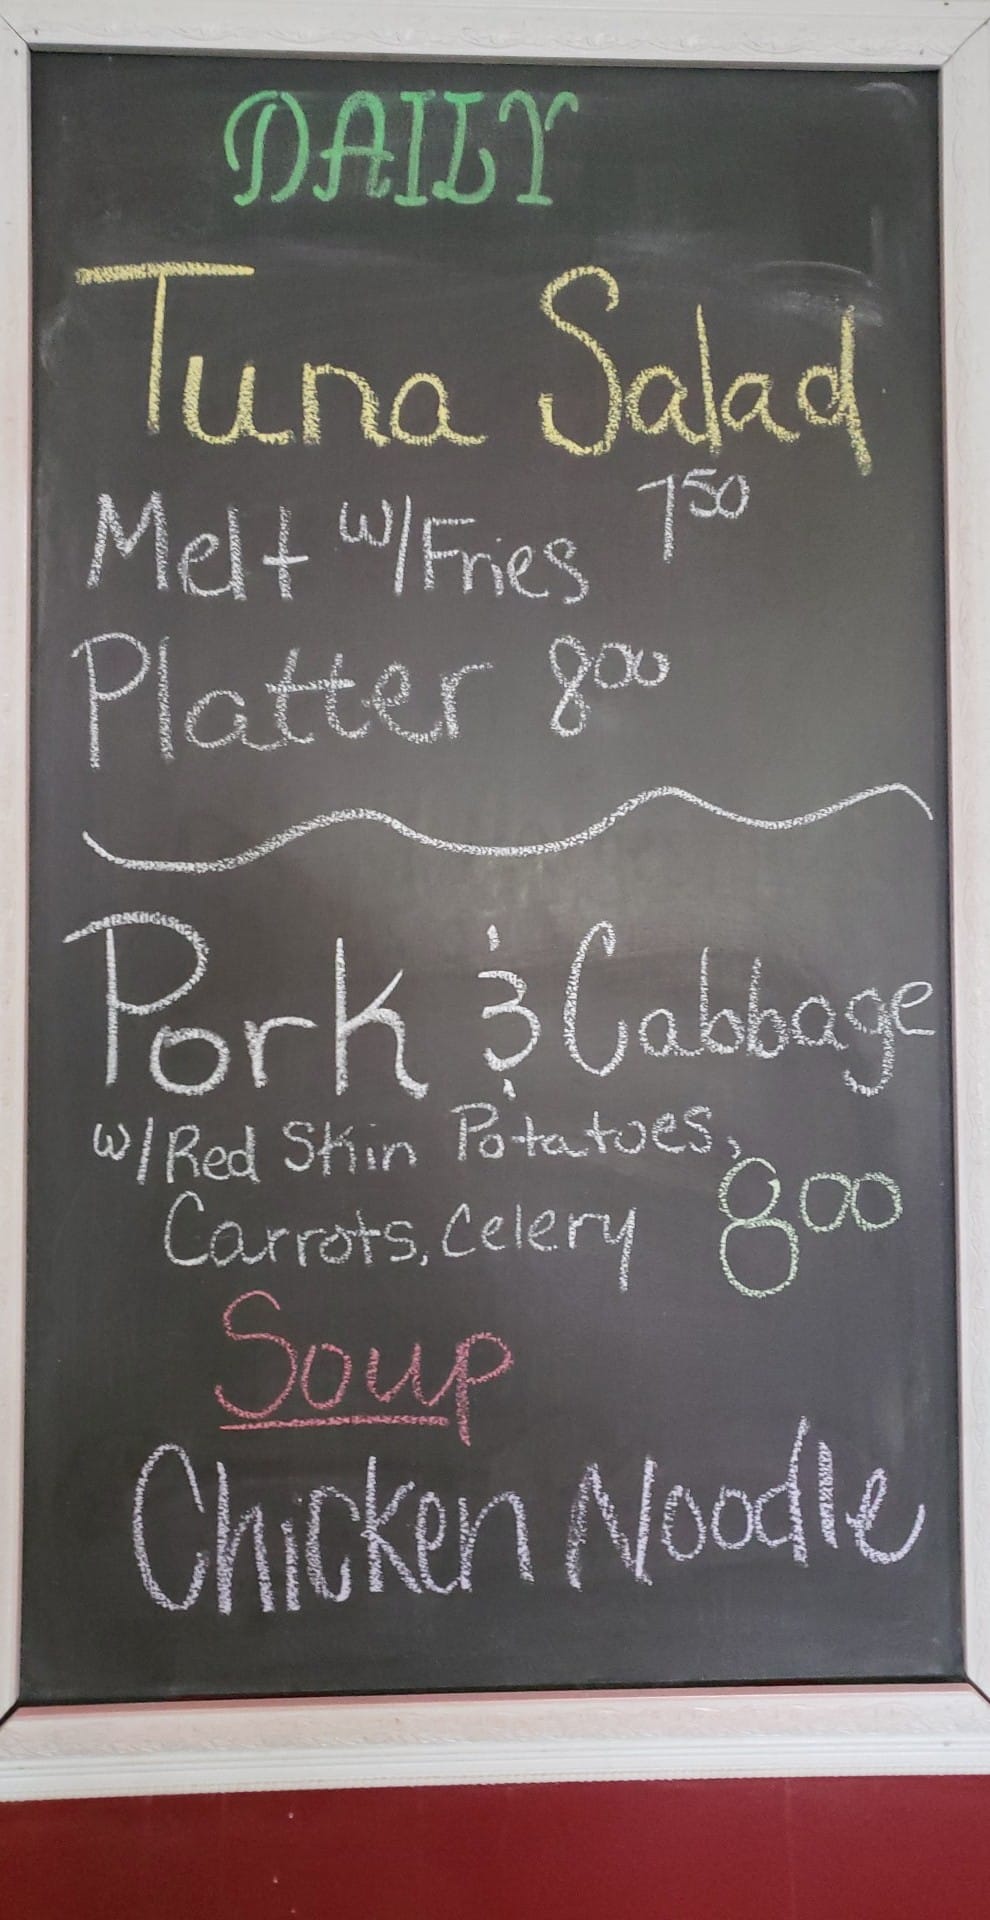 DAILY
Tuna Salad
Melt w/Fries 750
Platter 800
Pork & Cabbage
w/Red Skin Potatoes,
Carrots, Celery 800
Soup
Chicken Noodle